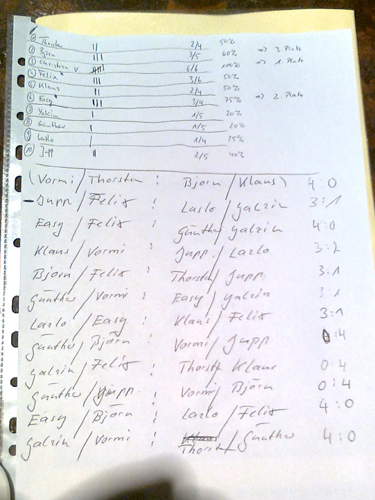 Thorsten || 2/4 50%
Björn ||| 3/5 60% => 3. Platz
Christian V 6/6 100% => 1. Platz
Felix ||| 3/6 50%
Klaus || 2/4 50%
Easy ||| 3/4 75% => 2. Platz
1/5 20%
Günther 1/5 20%
Lazlo 1/4 25%
Jupp || 2/5 40%
(Vormi / Thorsten : Björn / Klaus) 4:0
Jupp / Felix : Lazlo / Galzin 3:1
Easy / Felix : Günther / Galzin 4:0
Klaus / Vormi : Jupp / Lazlo 3:2
Björn / Felix : Thorsten / Jupp 3:1
Günther / Vormi : Easy / Galzin 3:1
Lazlo / Easy : Klaus / Felix 3:1
Günther / Björn : Vormi / Jupp 0:4
Galzin / Felix : Thorsten / Klaus 0:4
Günther / Jupp : Vormi / Björn 0:4
Easy / Björn : Lazlo / Felix 4:0
Galzin / Vormi : Thorsten / Günther 4:0